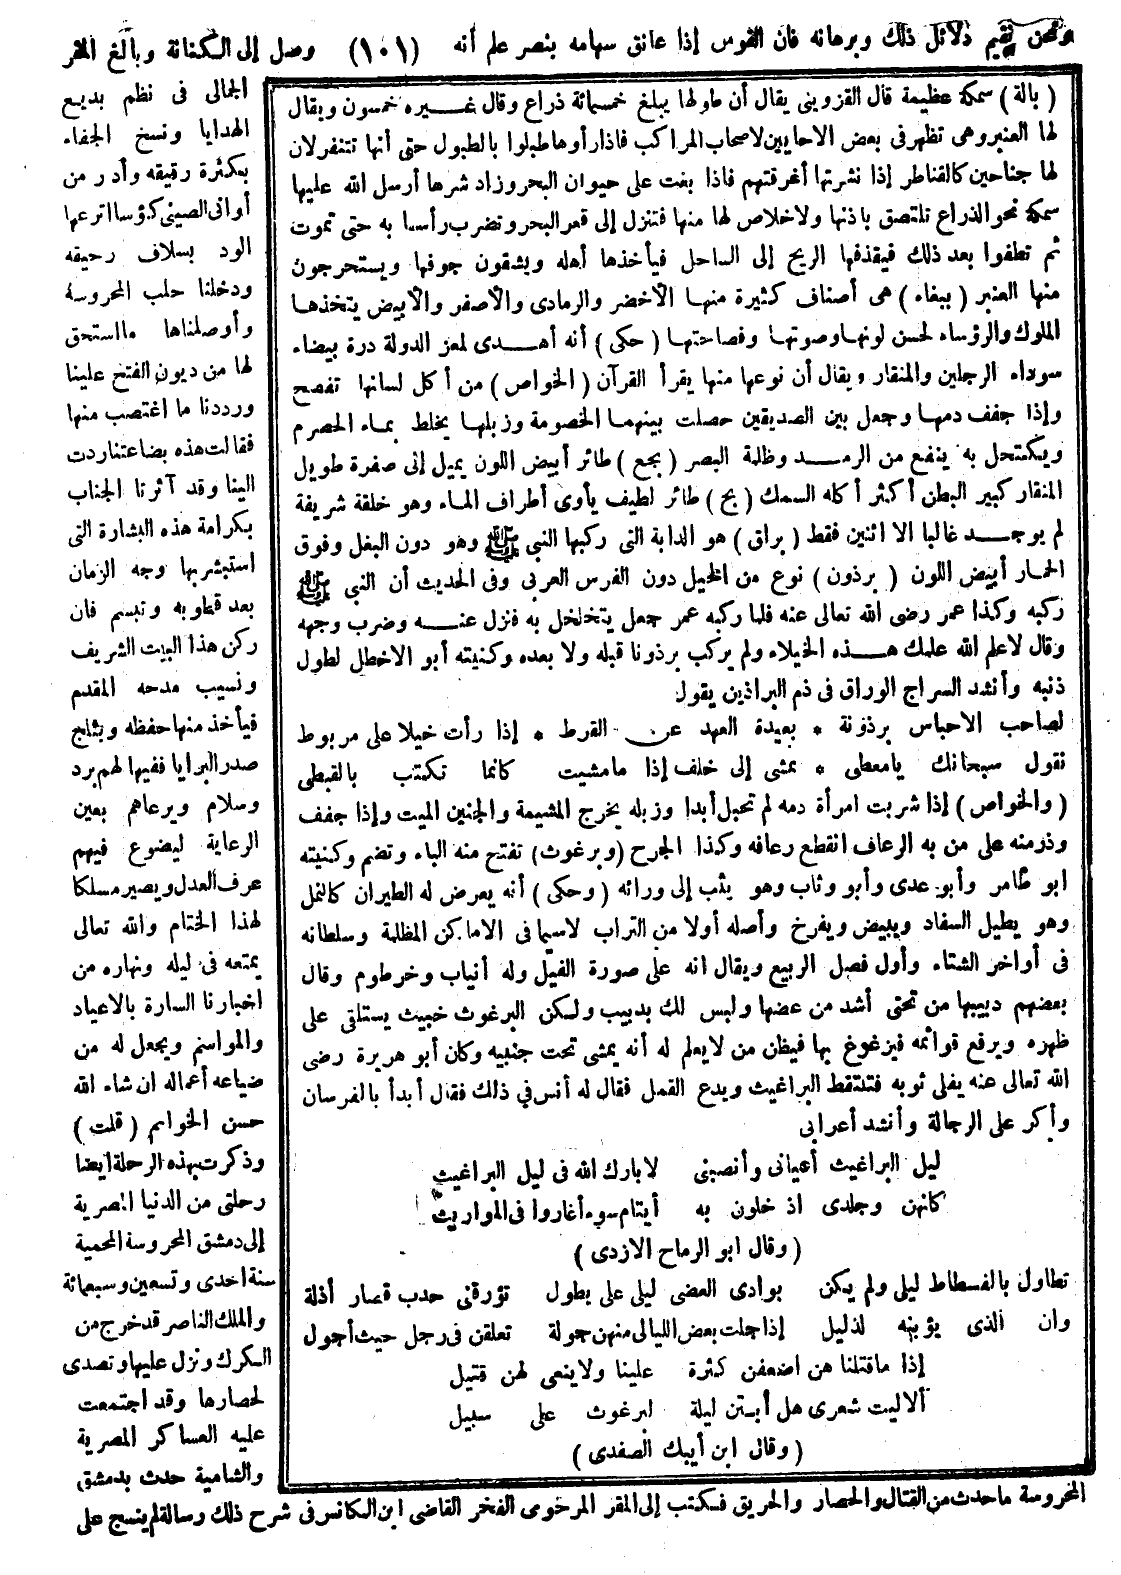 ونحن نقيم دلائل ذلك وبرهانه فان القوس إذا عانق سهامه بنصر علم أنه (١٠١) وصل إلى الكنانة وبالغ المقر
(بالة) سمكة عظيمة قال القزوينى يقال أن طولها يبلغ خمسمائة ذراع وقال غيره خمسون ويقال
لها العنبر وهى تظهر فى بعض الاحايين لاصحاب المراكب فاذا رأوها طبلوا بالطبول حتى أنها تنفر لان
لها جناحين كالقناطر إذا نشرتها أغرقتهم فاذا بغت على حيوان البحر وزاد شرها أرسل الله عليها
سمكة نحو الذراع تلتصق باذنها ولا خلاص لها منها فتنزل إلى قعر البحر وتضرب رأسها به حتى تموت
ثم تطفوا بعد ذلك فيقذفها الريح إلى الساحل فيأخذها أهله ويشقون جوفها ويستخرجون
منها العنبر (ببغاء) هى أصناف كثيرة منها الأخضر والرمادى والأصفر والأبيض يتخذها
الملوك والرؤساء لحسن لونها وصوتها وفصاحتها (حكى) أنه أهدى لمعز الدولة درة بيضاء
سوداء الرجلين والمنقار ويقال أن نوعها منها يقرأ القرآن (الخواص) من أكل لسانها تفصح
وإذا جفف دمها وجعل بين الصديقين حصلت بينهما الخصومة وزبلها يخلط بماء الحصرم
ويكتحل به ينفع من الرمد وظلمة البصر (بجع) طائر أبيض اللون يميل إلى صفرة طويل
المنقار كبير البطن أكثر أكله السمك (بج) طائر لطيف يأوى أطراف الماء وهو خلقة شريفة
لم يوجد غالبا الا اثنين فقط (براق) هو الدابة التى ركبها النبى ﷺ وهو دون البغل وفوق
الحمار أبيض اللون (برذون) نوع من الخيل دون الفرس العربى وفى الحديث أن النبى ﷺ
ركبه وكذا عمر رضى الله تعالى عنه فلما ركبه عمر جعل يتخلخل به فنزل عنه وضرب وجهه
وقال لا علم الله علمك هذه الخيلاء ولم يركب برذونا قبله ولا بعده وكنيته أبو الاخطل لطول
ذنبه وأنشد السراج الوراق فى ذم البراذين يقول
لصاحب الاحباس برذونة * بعيدة العهد عن القرط * إذا رأت خيلا على مربوط
تقول سبحانك يا معطى * تمشى إلى خلف إذا ما مشيت كانما تكتب بالقبطى
(والخواص) إذا شربت امرأة دمه لم تحبل أبدا وزبله يخرج المشيمة والجنين الميت وإذا جفف
وذر منه على من به الرعاف انقطع رعافه وكذا الجرح (وبرغوث) تفتح منه الباء وتضم وكنيته
ابو طامر وأبو عدى وأبو وثاب وهو يثب إلى ورائه (وحكى) أنه يعرض له الطيران كالنمل
وهو يطيل السفاد ويبيض ويفرخ وأصله أولا من التراب لاسيما فى الاماكن المظلمة وسلطانه
فى أواخر الشتاء وأول فصل الربيع ويقال انه على صورة الفيل وله أنياب وخرطوم وقال
بعضهم دبيبها من تحتى أشد من عضها وليس لك بدبيب ولكن البرغوث خبيث يستلقى على
ظهره ويرفع قوائمه فيزغوغ بها فيظن من لا يعلم له أنه يمشى تحت جنبيه وكان أبو هريرة رضى
الله تعالى عنه يفلى ثوبه فتلتقط البراغيث ويدع القمل فقال له أنس فى ذلك فقال أبدأ بالفرسان
وأكر على الرجالة وأنشد أعرابى
ليل البراغيث أعيانى وأنصبنى لا بارك الله فى ليل البراغيث
كانهن وجلدى اذ خلون به أيتام سوء أغاروا فى المواريث
(وقال ابو الرماح الازدى)
تطاول بالفسطاط ليلى ولم يكن بوادى الغضى ليلى على بطول تؤرقنى حدب قصار أذلة
وان الذى يؤذينه لذليل إذا جلت بعض الليالى منهن جولة تعلقن فى رجل حيث أجول
إذا ما قتلنا هن اضعفن كثرة علينا ولا ينعى لهن قتيل
ألا ليت شعرى هل أبيتن ليلة لبرغوث على سبيل
(وقال ابن أيبك الصفدى)
الجالى فى نظم بديع
الهدايا ونسخ الجفاء
بكثرة رقيقه وأدر من
أوانى الصينى كؤسا اترعها
الود بسلاف رحيقه
ودخلنا حلب المحروسة
وأوصلناها ما استحق
لها من ديون الفتح علينا
ورددنا ما اغتصب منها
فقالت هذه بضاعتنا ردت
الينا وقد آثرنا الجناب
بكرامة هذه البشارة التى
استبشر بها وجه الزمان
بعد قطوبه وتبسم فان
ركن هذا البيت الشريف
ونسيب مدحه المقدم
فيأخذ منها حفظه ويثلج
صدر البرايا ففيها لهم برد
وسلام ويرعاهم بعين
الرعاية ليضوع فيهم
عرف العدل ويصير مسلكا
لهذا الختام والله تعالى
يمتعه فى ليله ونهاره من
اخبارنا السارة بالاعياد
والمواسم ويجعل له من
ضياعه أعماله ان شاء الله
حسن الخواتم (قلت)
وذكرت بهذه الرحلة ايضا
رحلتى من الدنيا المصرية
إلى دمشق المحروسة المحمية
سنة احدى وتسعين وسبعمائة
والملك الناصر قد خرج من
الكرك ونزل عليها وتصدى
لحصارها وقد اجتمعت
عليه العساكر المصرية
والشامية حدث بدمشق
المحروسة ما حدث من القتال والحصار والحريق فكتب إلى المقر المرخومى الفخر القاضى ابن الكانس فى شرح ذلك رسالة لم ينسج على